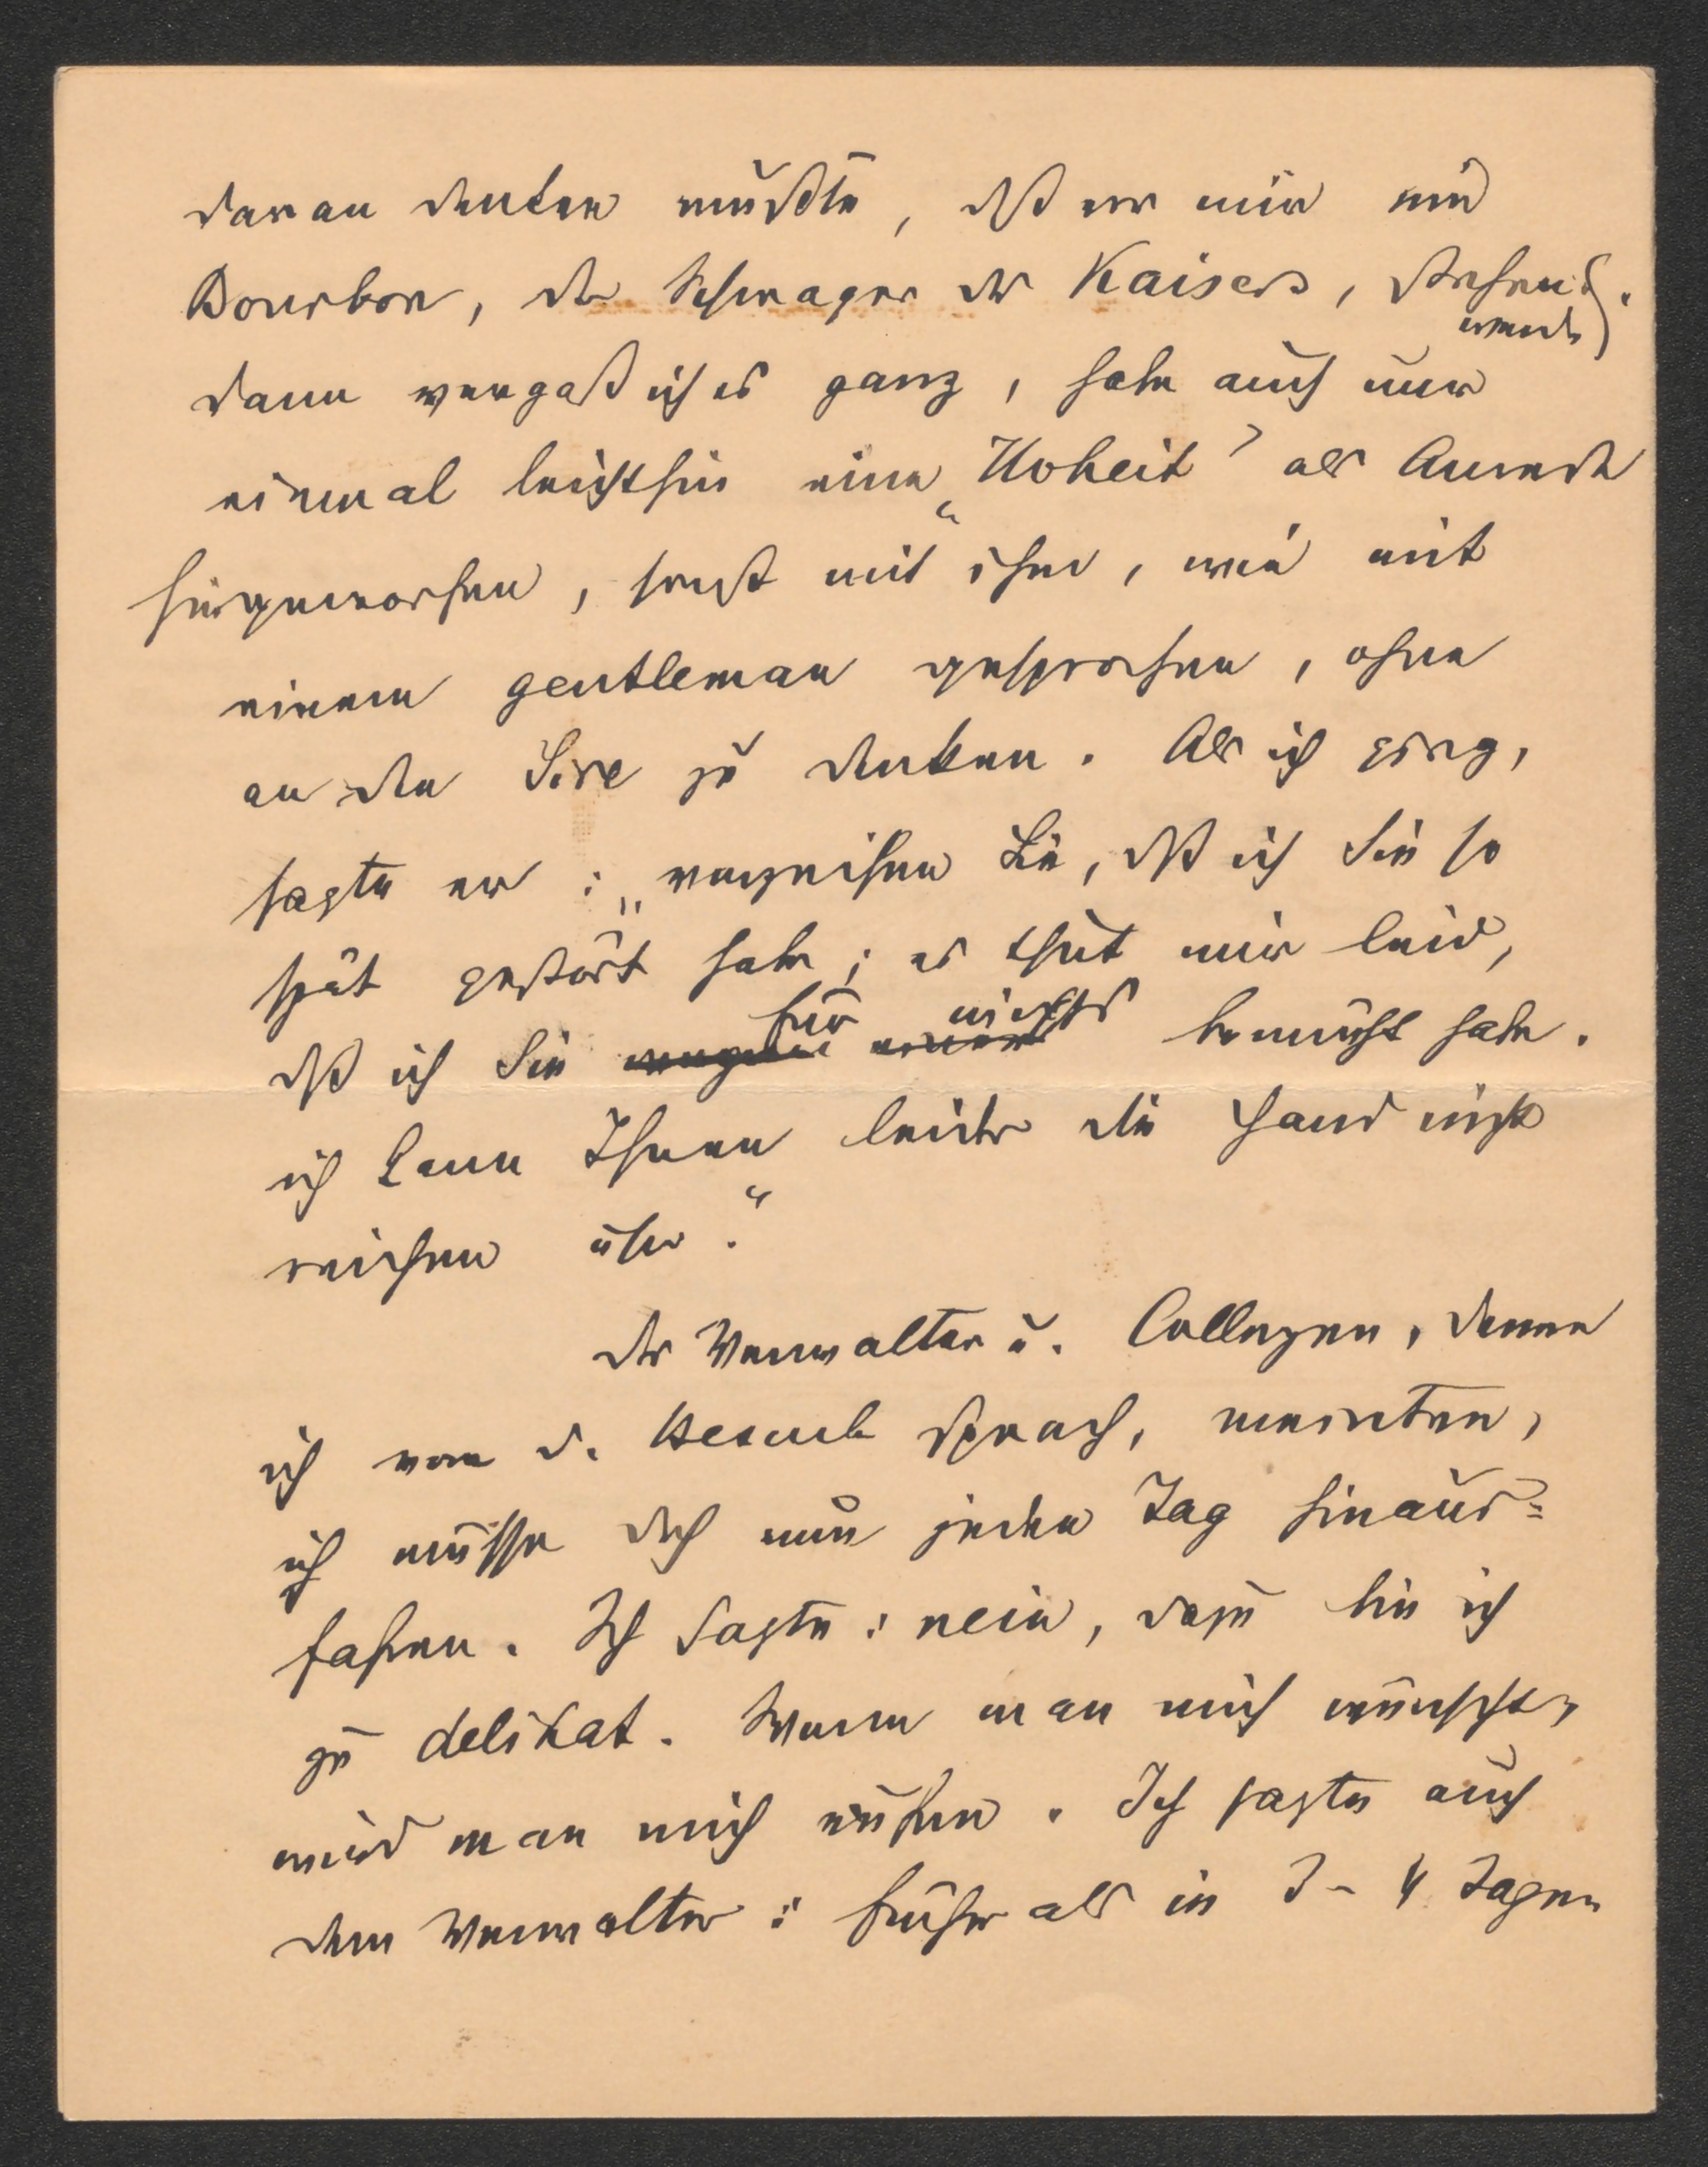 daran denken mußte, dß er mir ein
Bourbon, der Schwager des Kaisers,
werde).
Dann vergaß ich es ganz, habe auch nur
einmal leichthin eine „Hoheit“ als Anrede
hingeworfen, sonst mit ihm, wie mit
einem gentleman gesprochen, ohne
an den Sire zu denken. Als ich ging,
sagte er: „verzeihen Sie, dß ich Sie so
spät gestört habe; es thut mir leid,
dß ich Sie für nichts bemüht habe.
ich kann Ihnen leider die Hand nicht
reichen
Der Verwalter u. Collegen, denen
ich von d. Besuch sprach, meinten,
ich müsse doch nun jeden Tag hinaus=
fahren. Ich sagte: nein, dazu bin ich
zu delikat. Wenn man mich wünscht,
wird man mich rufen. Ich sagte auch
dem Verwalter: früher als in 3-4 Tagen